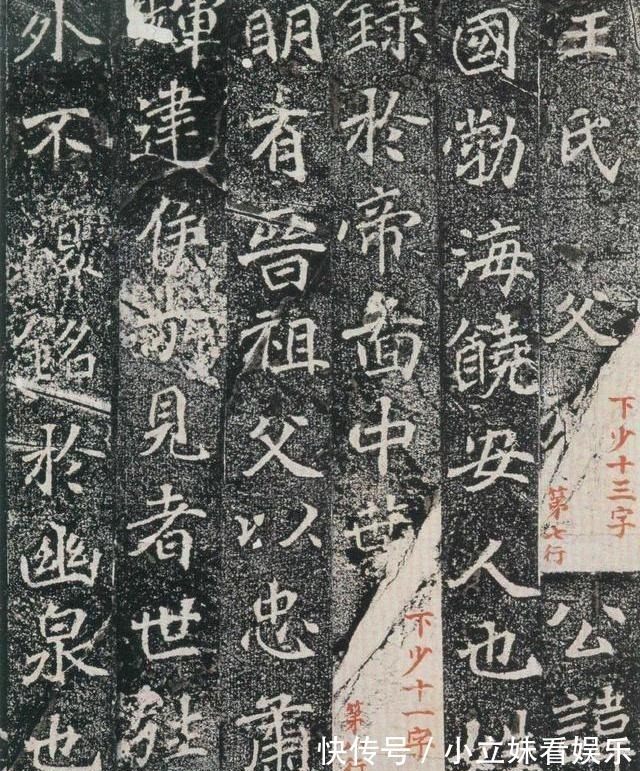 王氏父
公諱
國勃海饒安人也
錄於帝啚中葉
明有晉祖父以忠肅
輝建侯所見者世
外不復銘於幽泉也
下少十三字
第七行
下少十一字
第
快传号 / 小立妹看娱乐